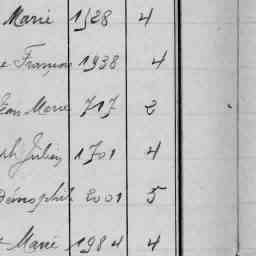 Marie 1528 4
e François 1938 4
Jean Marie 717 2
ph Julien 1701 4
Démophile 2001 5
t Marie 1984 4